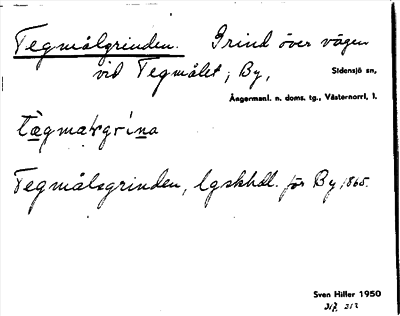 Tegmålgrinden. Grind över vägen
vid Tegmålet, By,
Sidensjö sn,
Ångermanl. n. doms. tg., Västernorrl. l.
Tegmålsgrinden, lgskhdl. för By 1865.
Sven Hiller 1950